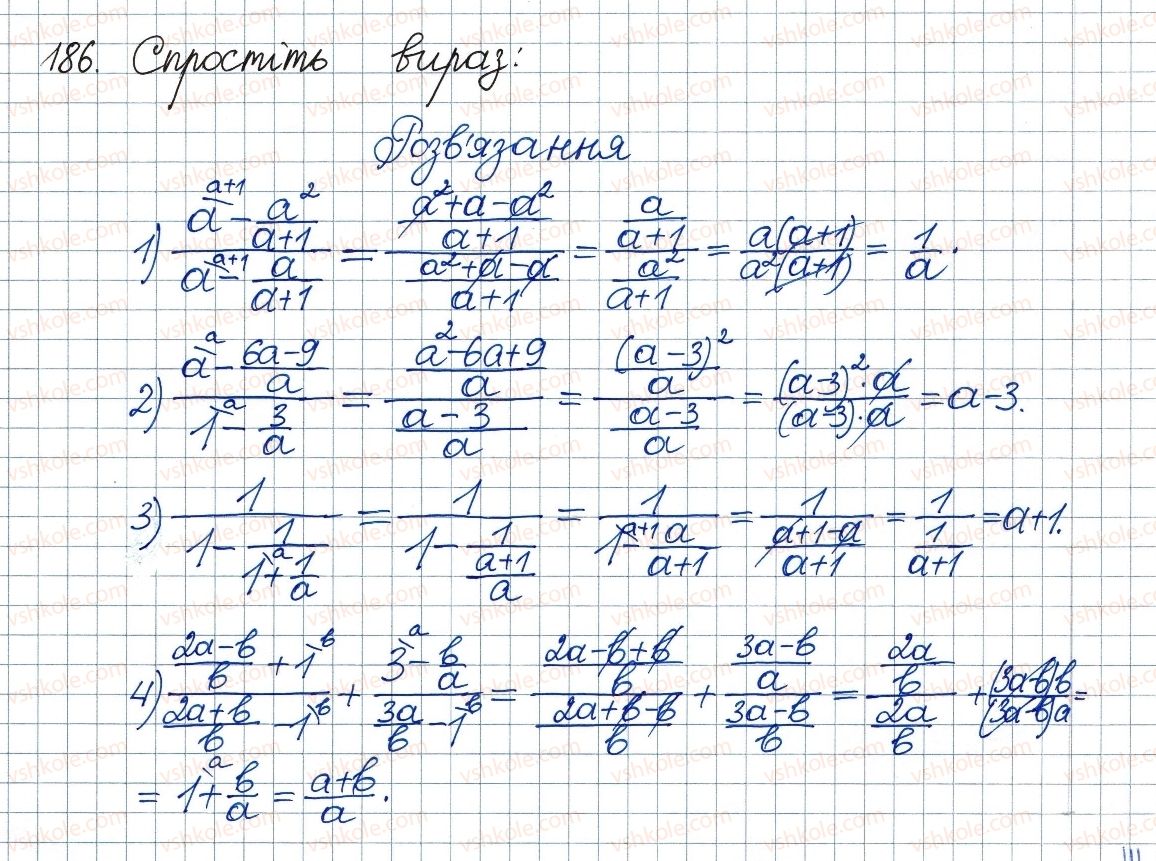 186. Спростіть вираз:
Розв'язання
1) \frac{a^{\backslash a+1} - \frac{a^2}{a+1}}{a^{\backslash a+1} - \frac{a}{a+1}} = \frac{\frac{a^2+a-a^2}{a+1}}{\frac{a^2+a-a}{a+1}} = \frac{\frac{a}{a+1}}{\frac{a^2}{a+1}} = \frac{a(a+1)}{a^2(a+1)} = \frac{1}{a}.
2) \frac{a^{\backslash a} - \frac{6a-9}{a}}{1^{\backslash a} - \frac{3}{a}} = \frac{\frac{a^2-6a+9}{a}}{\frac{a-3}{a}} = \frac{\frac{(a-3)^2}{a}}{\frac{a-3}{a}} = \frac{(a-3)^2 \cdot a}{(a-3) \cdot a} = a-3.
3) \frac{1}{1-\frac{1}{1^{\backslash a}+\frac{1}{a}}} = \frac{1}{1-\frac{1}{\frac{a+1}{a}}} = \frac{1}{1^{\backslash a+1}-\frac{a}{a+1}} = \frac{1}{\frac{a+1-a}{a+1}} = \frac{1}{\frac{1}{a+1}} = a+1.
4) \frac{\frac{2a-b}{b}+1^{\backslash b}}{\frac{2a+b}{b}-1^{\backslash b}} + \frac{3^{\backslash a}-\frac{b}{a}}{\frac{3a}{b}-1^{\backslash b}} = \frac{\frac{2a-b+b}{b}}{\frac{2a+b-b}{b}} + \frac{\frac{3a-b}{a}}{\frac{3a-b}{b}} = \frac{\frac{2a}{b}}{\frac{2a}{b}} + \frac{(3a-b)b}{(3a-b)a} =
= 1^{\backslash a}+\frac{b}{a} = \frac{a+b}{a}.